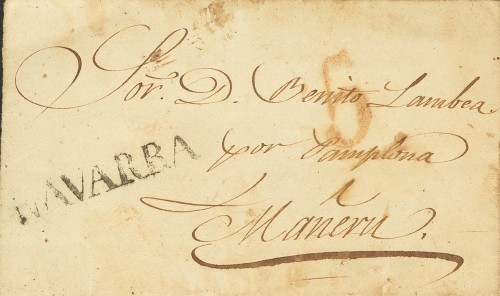 Sor. D. Benito Lambea
6
por Pamplona
NAVARRA
a
Mañeru.